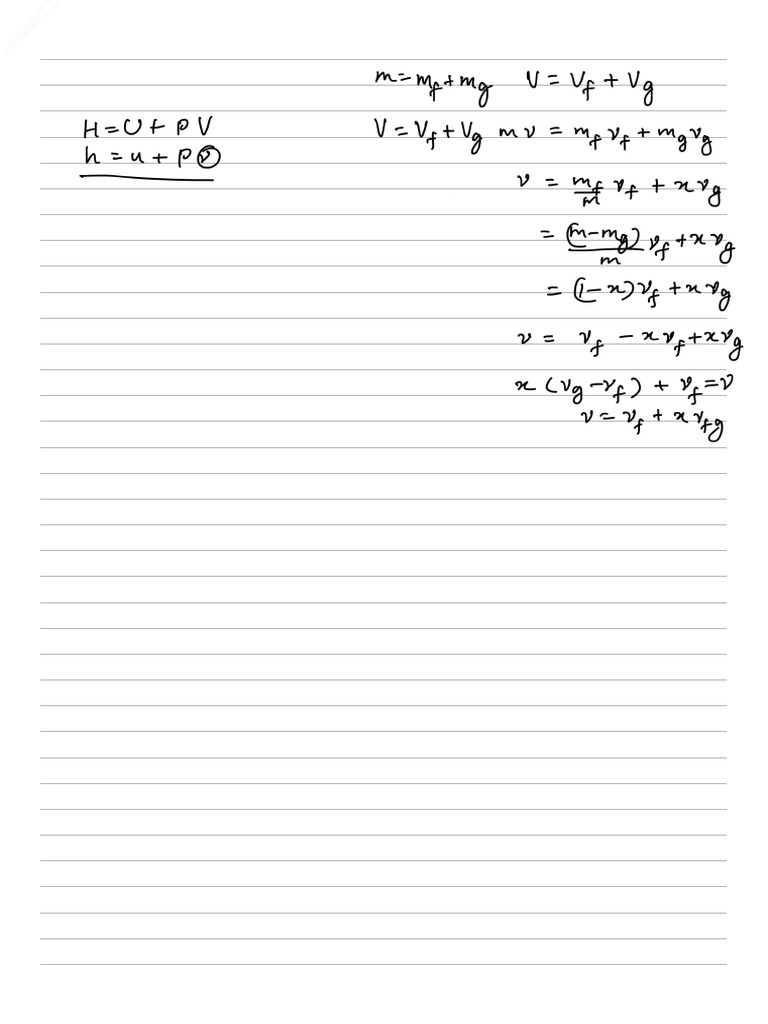 m = m_f + m_g    V = V_f + V_g
H = U + P V
h = u + p v
V = V_f + V_g    m v = m_f v_f + m_g v_g
v = m_f/m v_f + x v_g
= (m - m_g)/m v_f + x v_g
= (1 - x) v_f + x v_g
v = v_f - x v_f + x v_g
x (v_g - v_f) + v_f = v
v = v_f + x v_fg